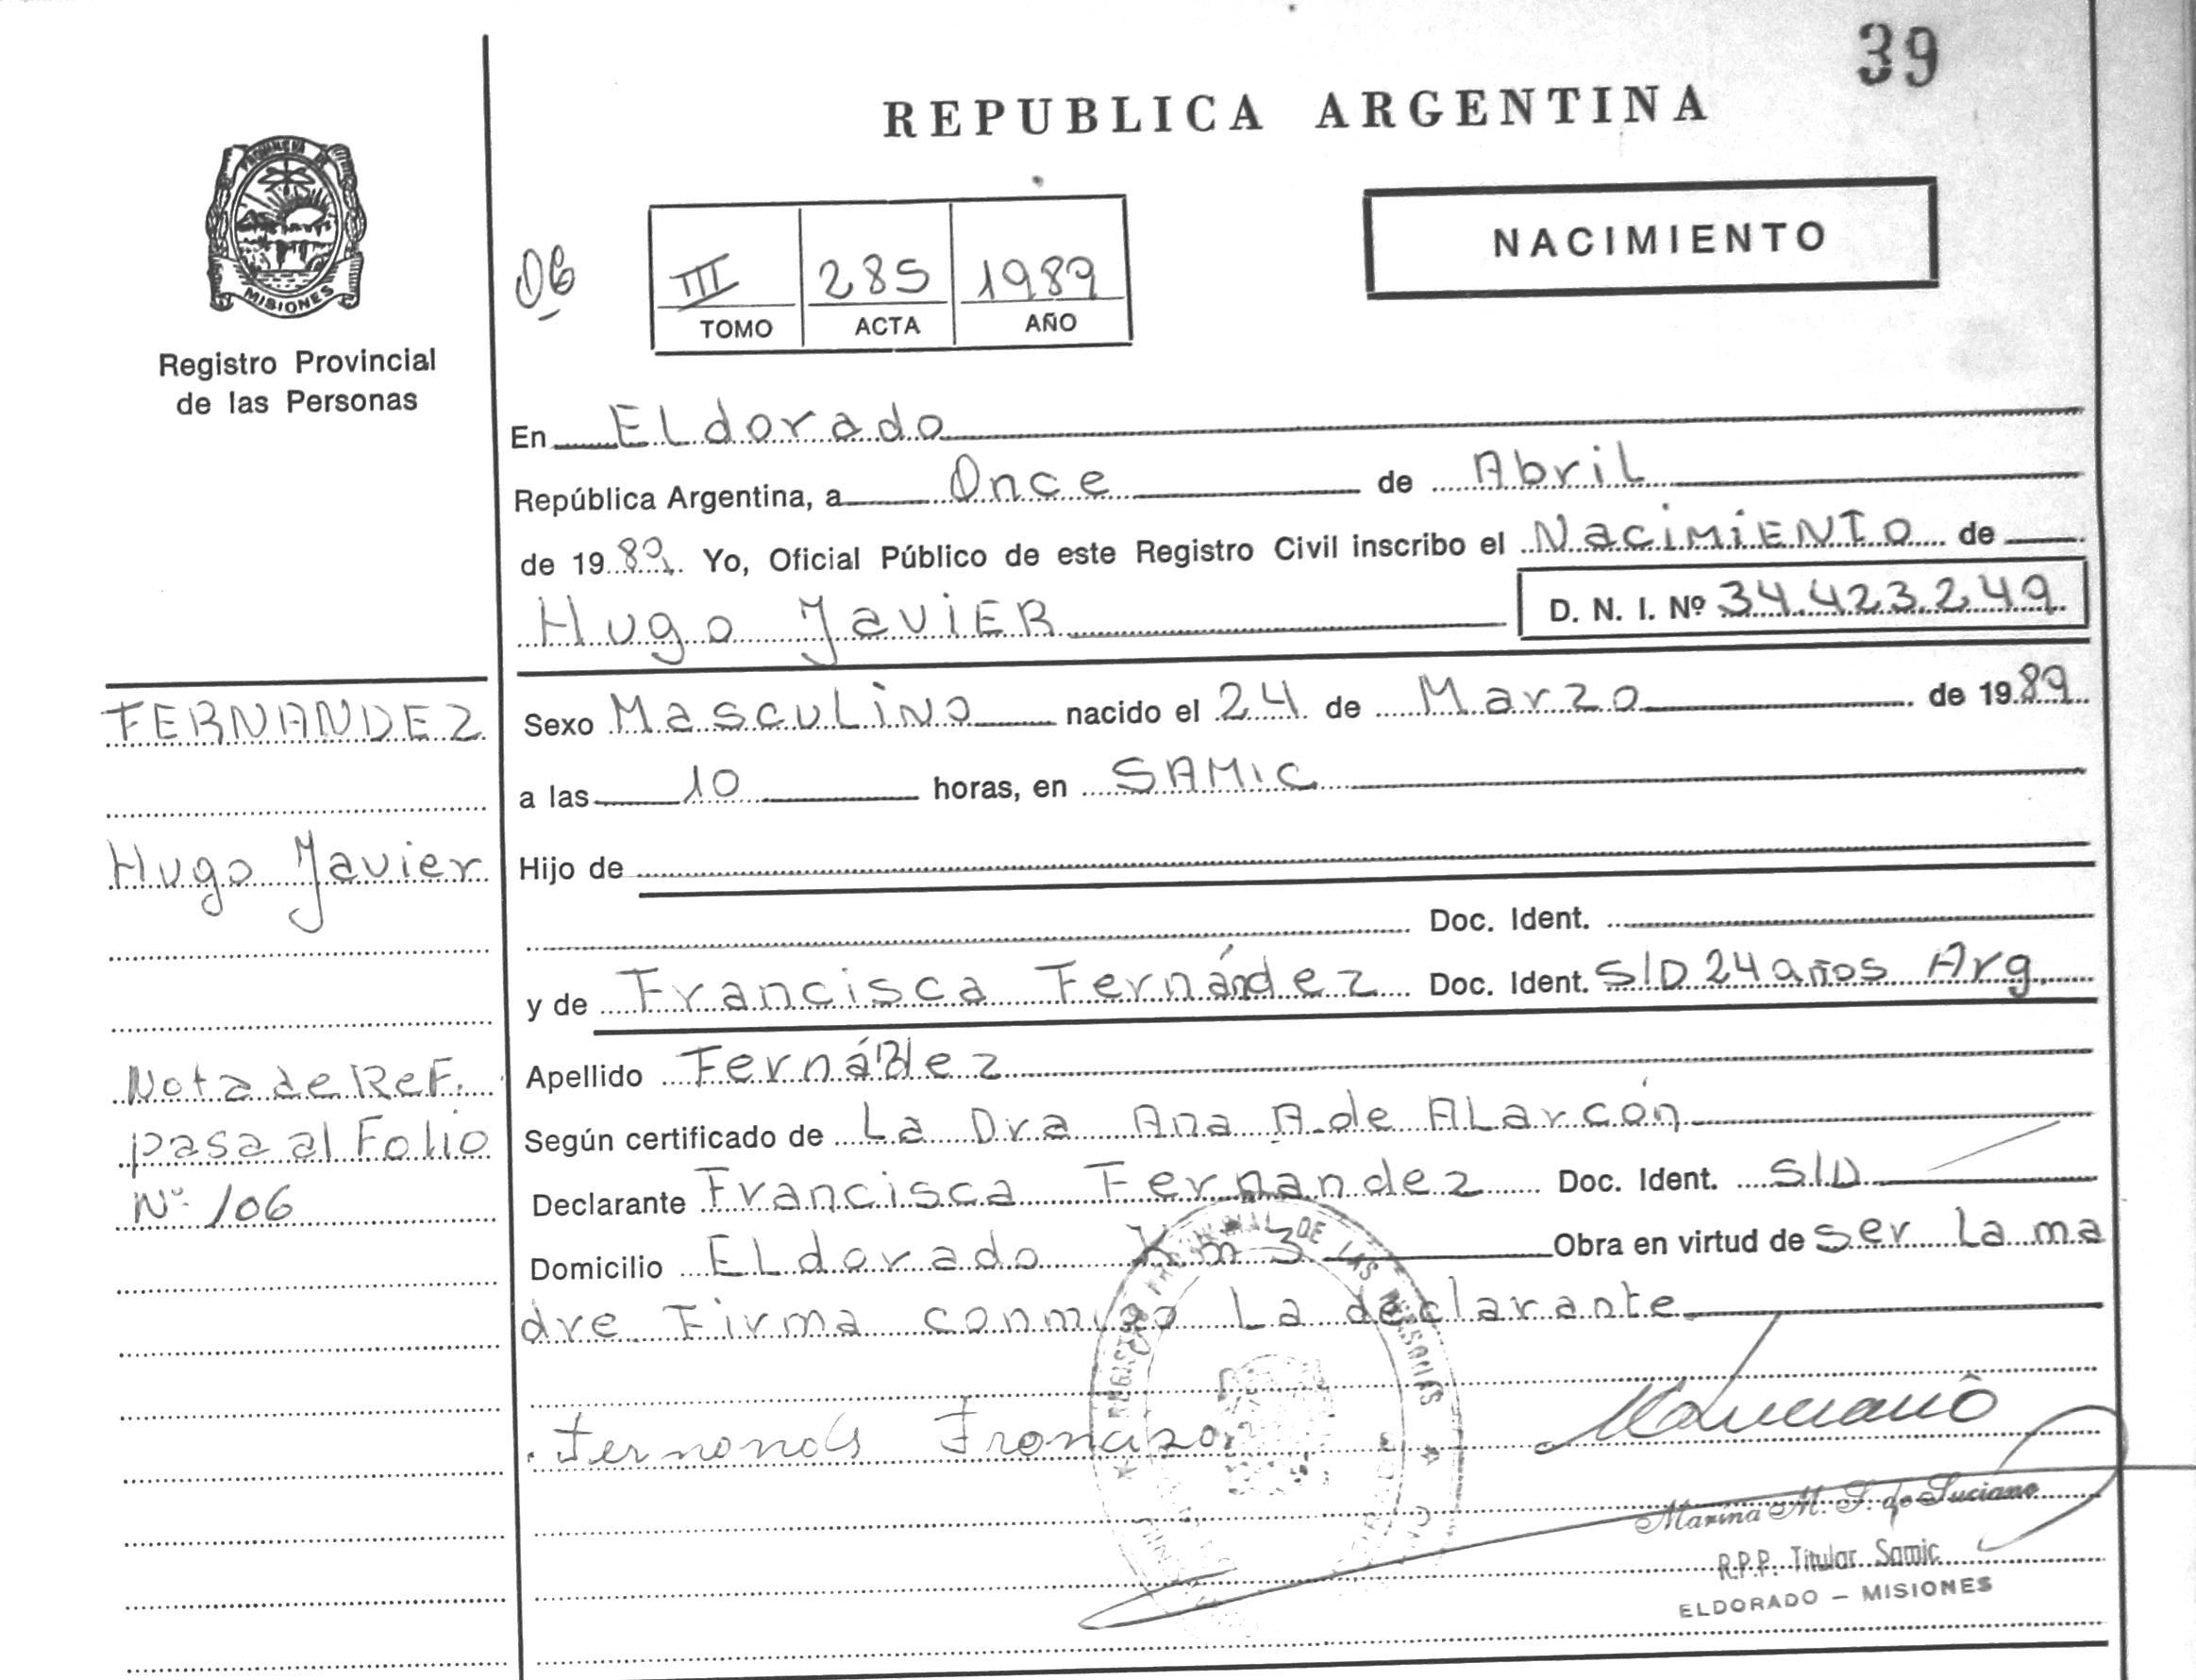 39
REPUBLICA ARGENTINA
NACIMIENTO
PROVINCIA DE
MISIONES
Registro Provincial
de las Personas
06
III 285 1989
TOMO ACTA AÑO
En Eldorado
República Argentina, a Once de Abril
de 1989. Yo, Oficial Público de este Registro Civil inscribo el NaciMiENTO de
Hugo JaviER D. N. I. Nº 34.423.249
FERNANDEZ
Sexo MascuLiNo nacido el 24 de Marzo de 1989
a las 10 horas, en SAMIC
Hugo Javier
Hijo de
Doc. Ident.
y de Francisca Fernández Doc. Ident. S/D 24 años Arg.
Nota de Ref.
pasa al Folio
Nº 106
Apellido Fernández
Según certificado de La Dra Ana A. de ALarcón
Declarante Francisca Fernandez Doc. Ident. S/D
Domicilio ELdorado Km 3 Obra en virtud de ser La ma
dre Firma conmigo La declarante
REGISTRO PROVINCIAL DE LAS PERSONAS
Marina M. S. de Luciano
R.P.P. Titular Samic
ELDORADO — MISIONES